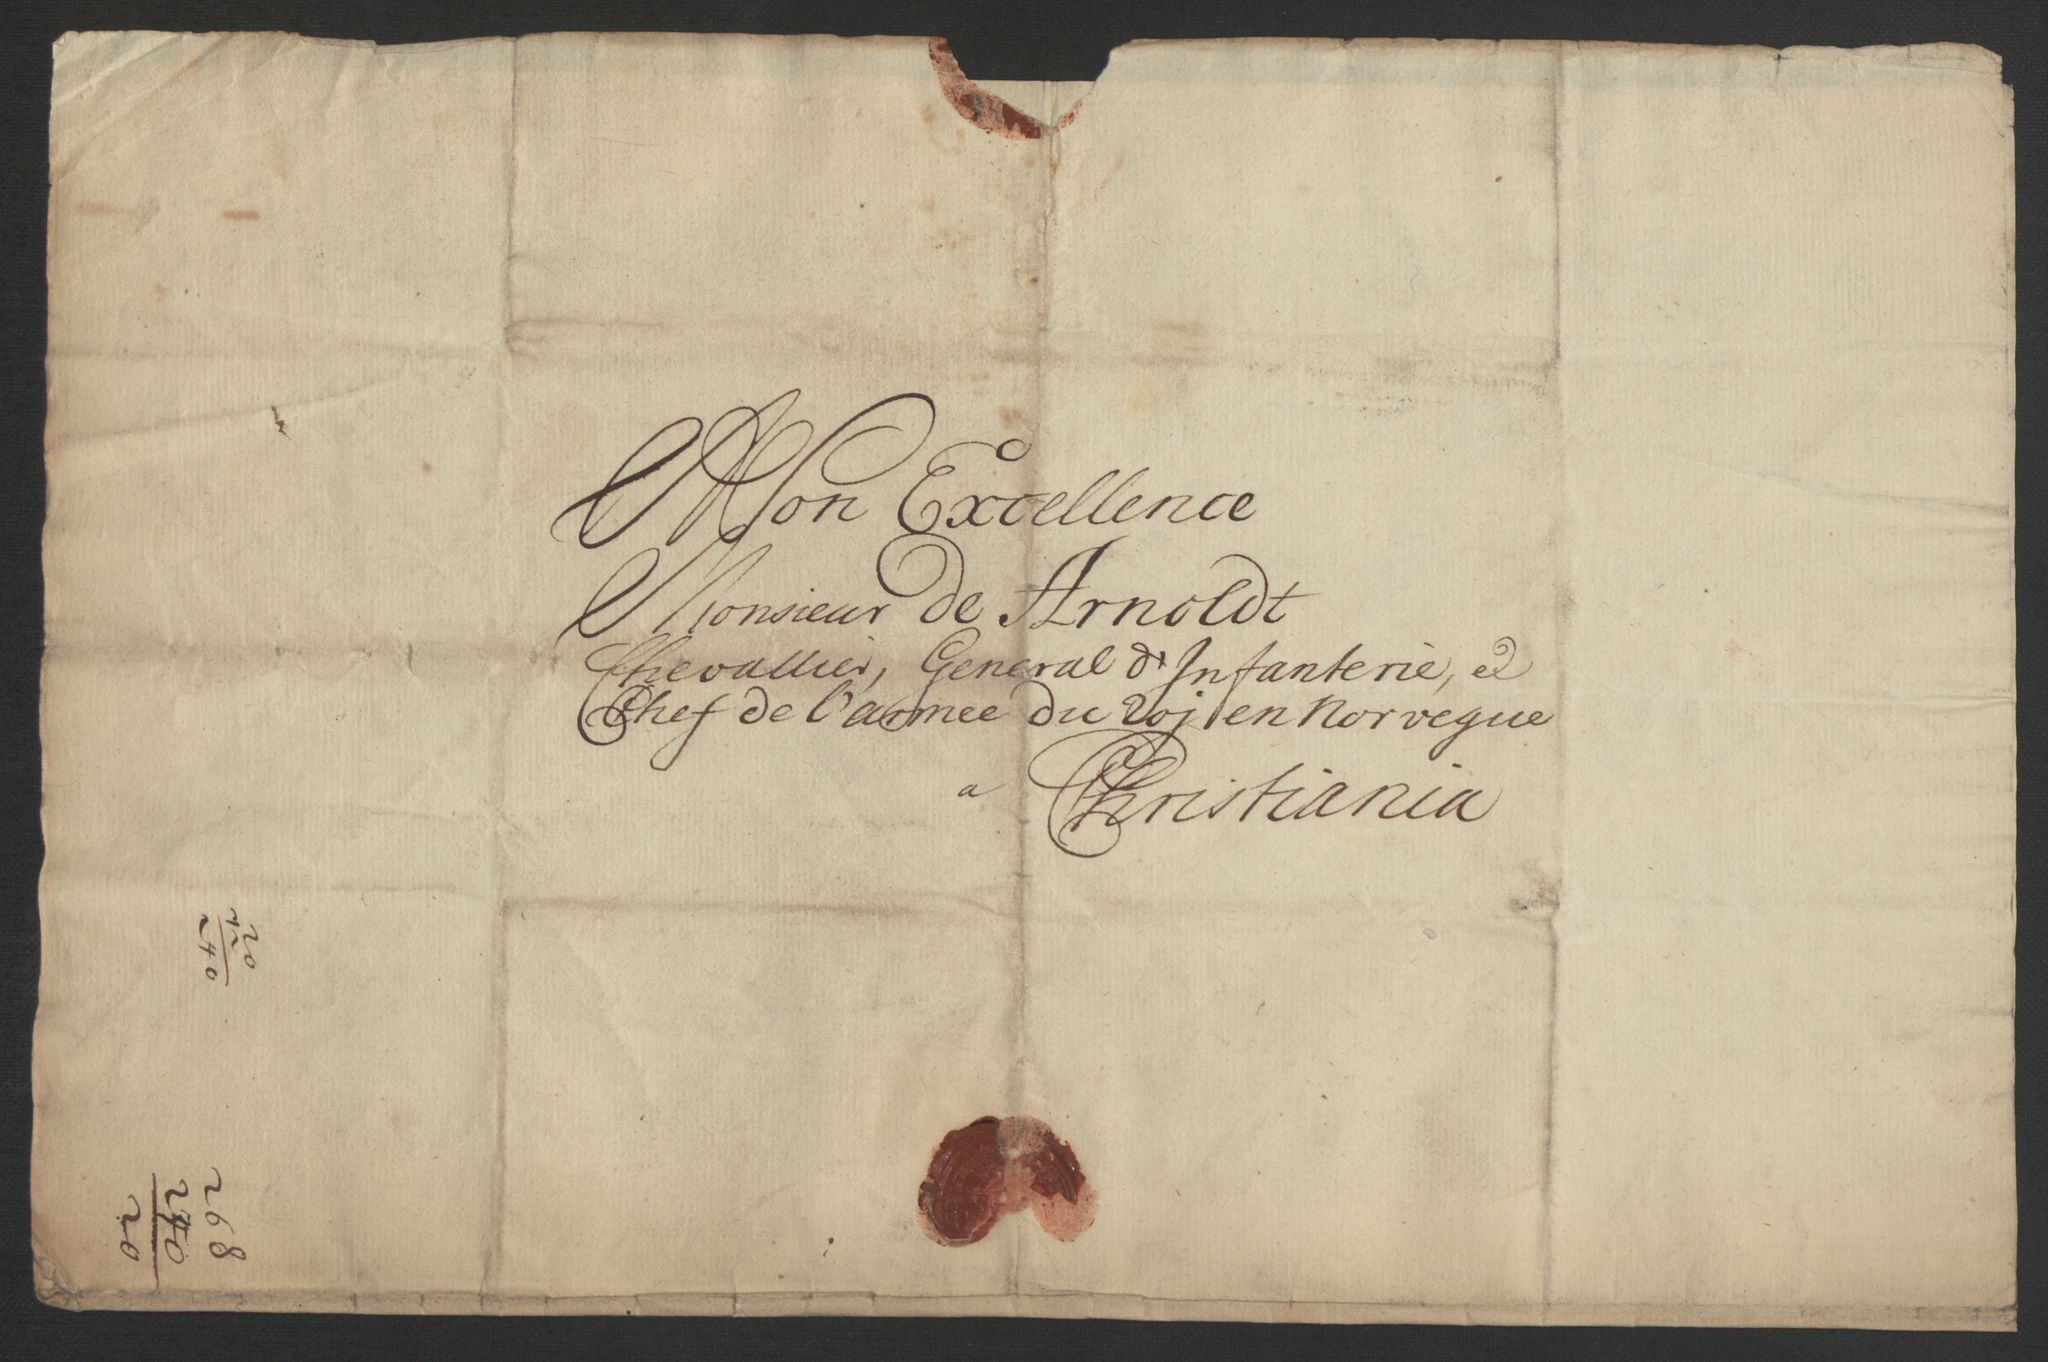 Mon Excellence
Monsieur de Arnoldt
Chevallier, General d'Infanterie, et
Chef de l'armee du Roj en Norvegue
a Christiania
20
240
268
20